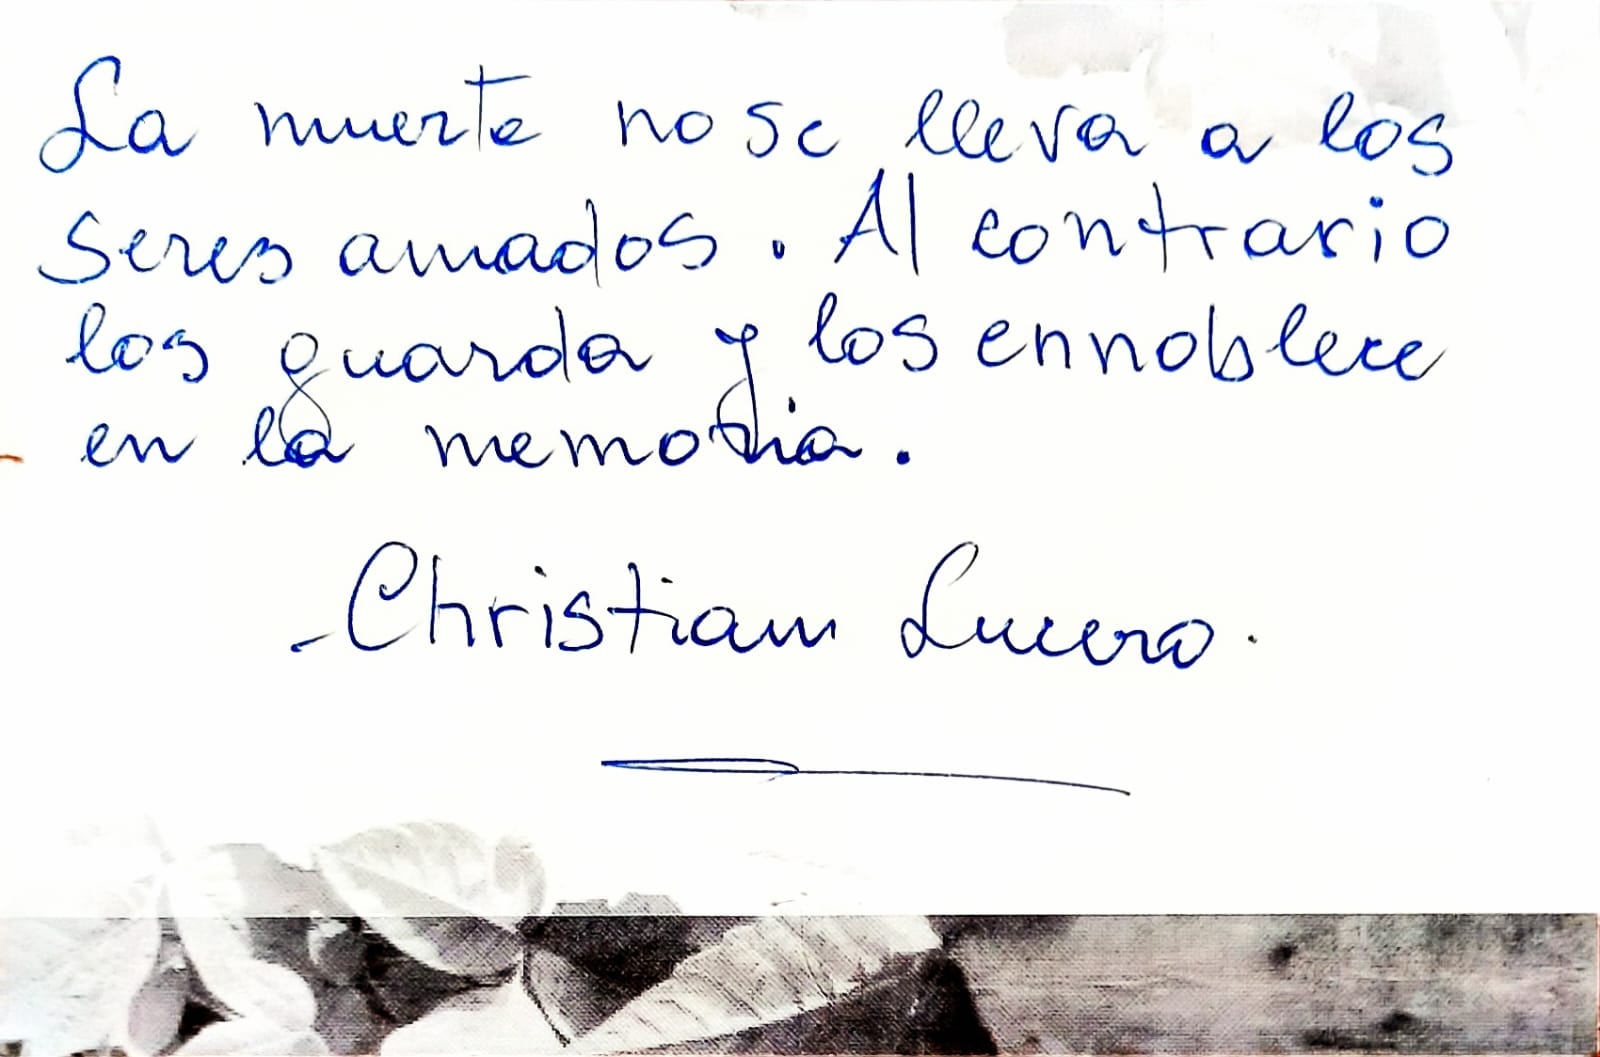 La muerte no se lleva a los
seres amados. Al contrario
los guarda y los ennoblece
en la memoria.
-Christiam Lucero.